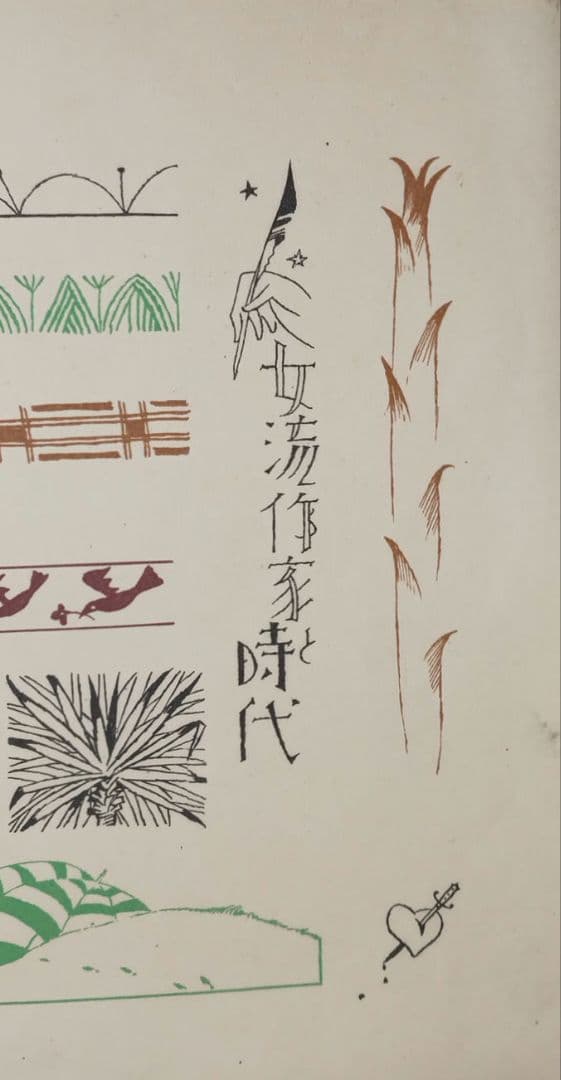 女流作家と時代